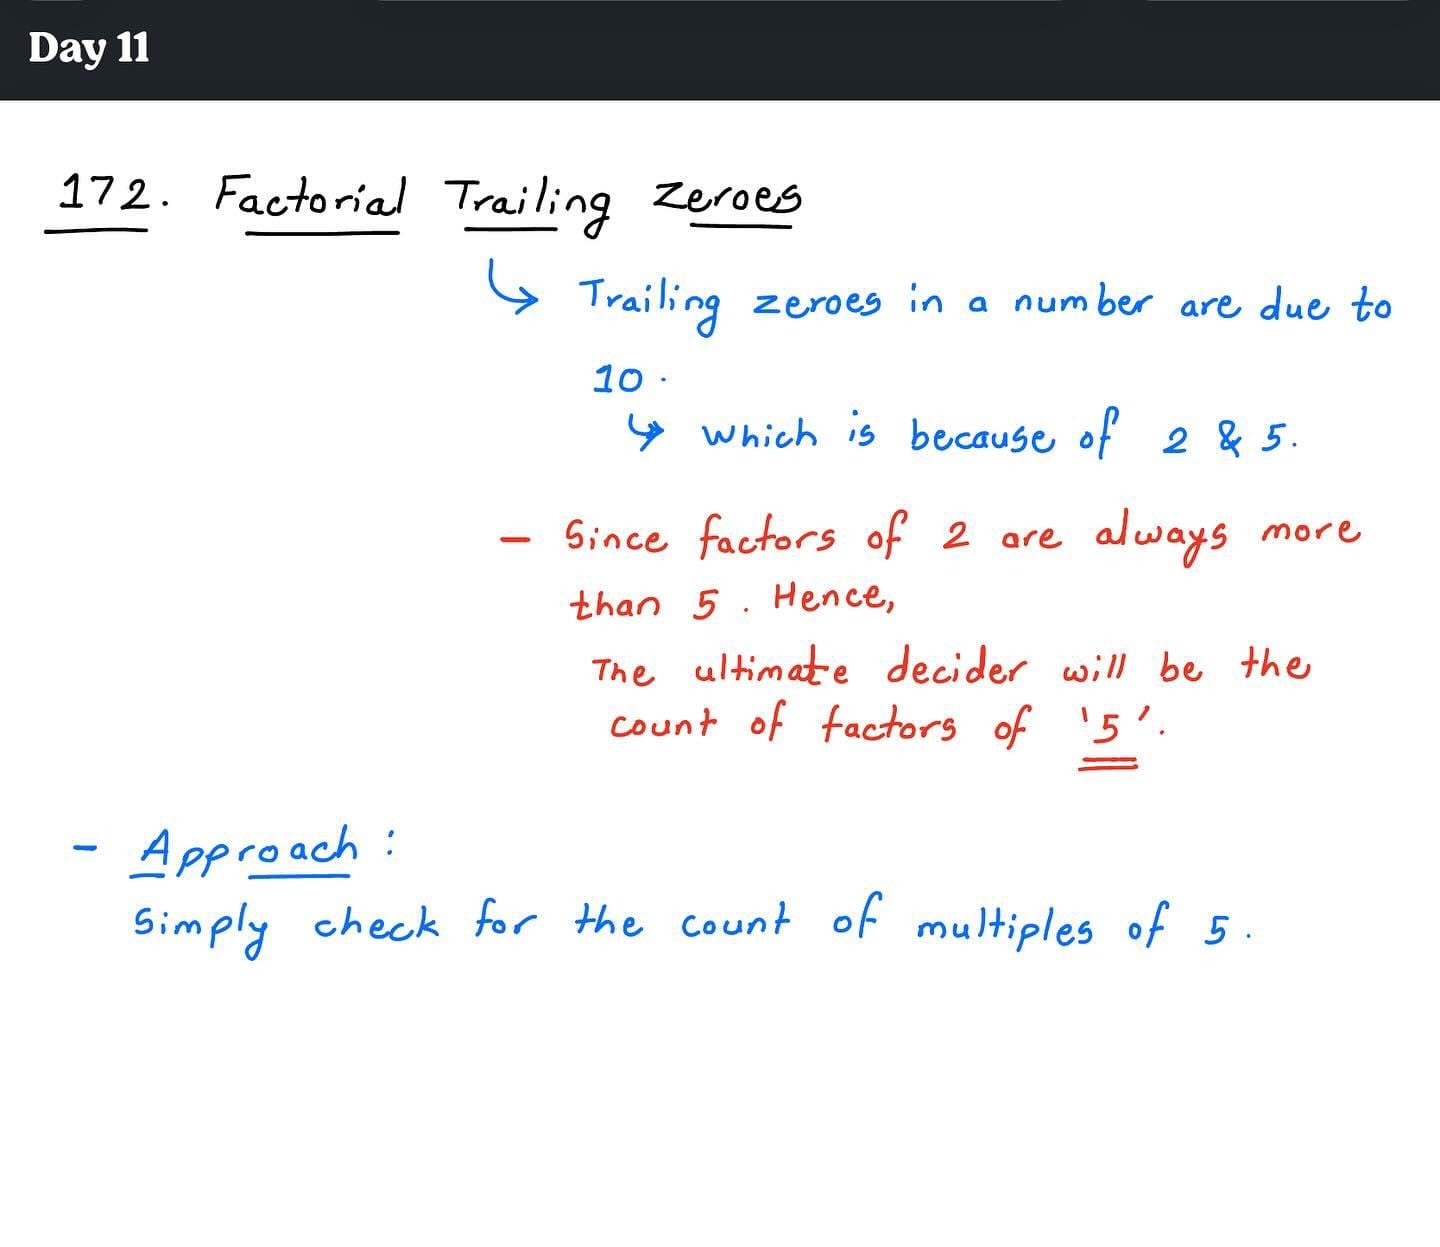 Day 11
172. Factorial Trailing Zeroes
↳ Trailing zeroes in a number are due to
10.
↳ which is because of 2 & 5.
- Since factors of 2 are always more
than 5. Hence,
The ultimate decider will be the
count of factors of '5'.
- Approach:
Simply check for the count of multiples of 5.